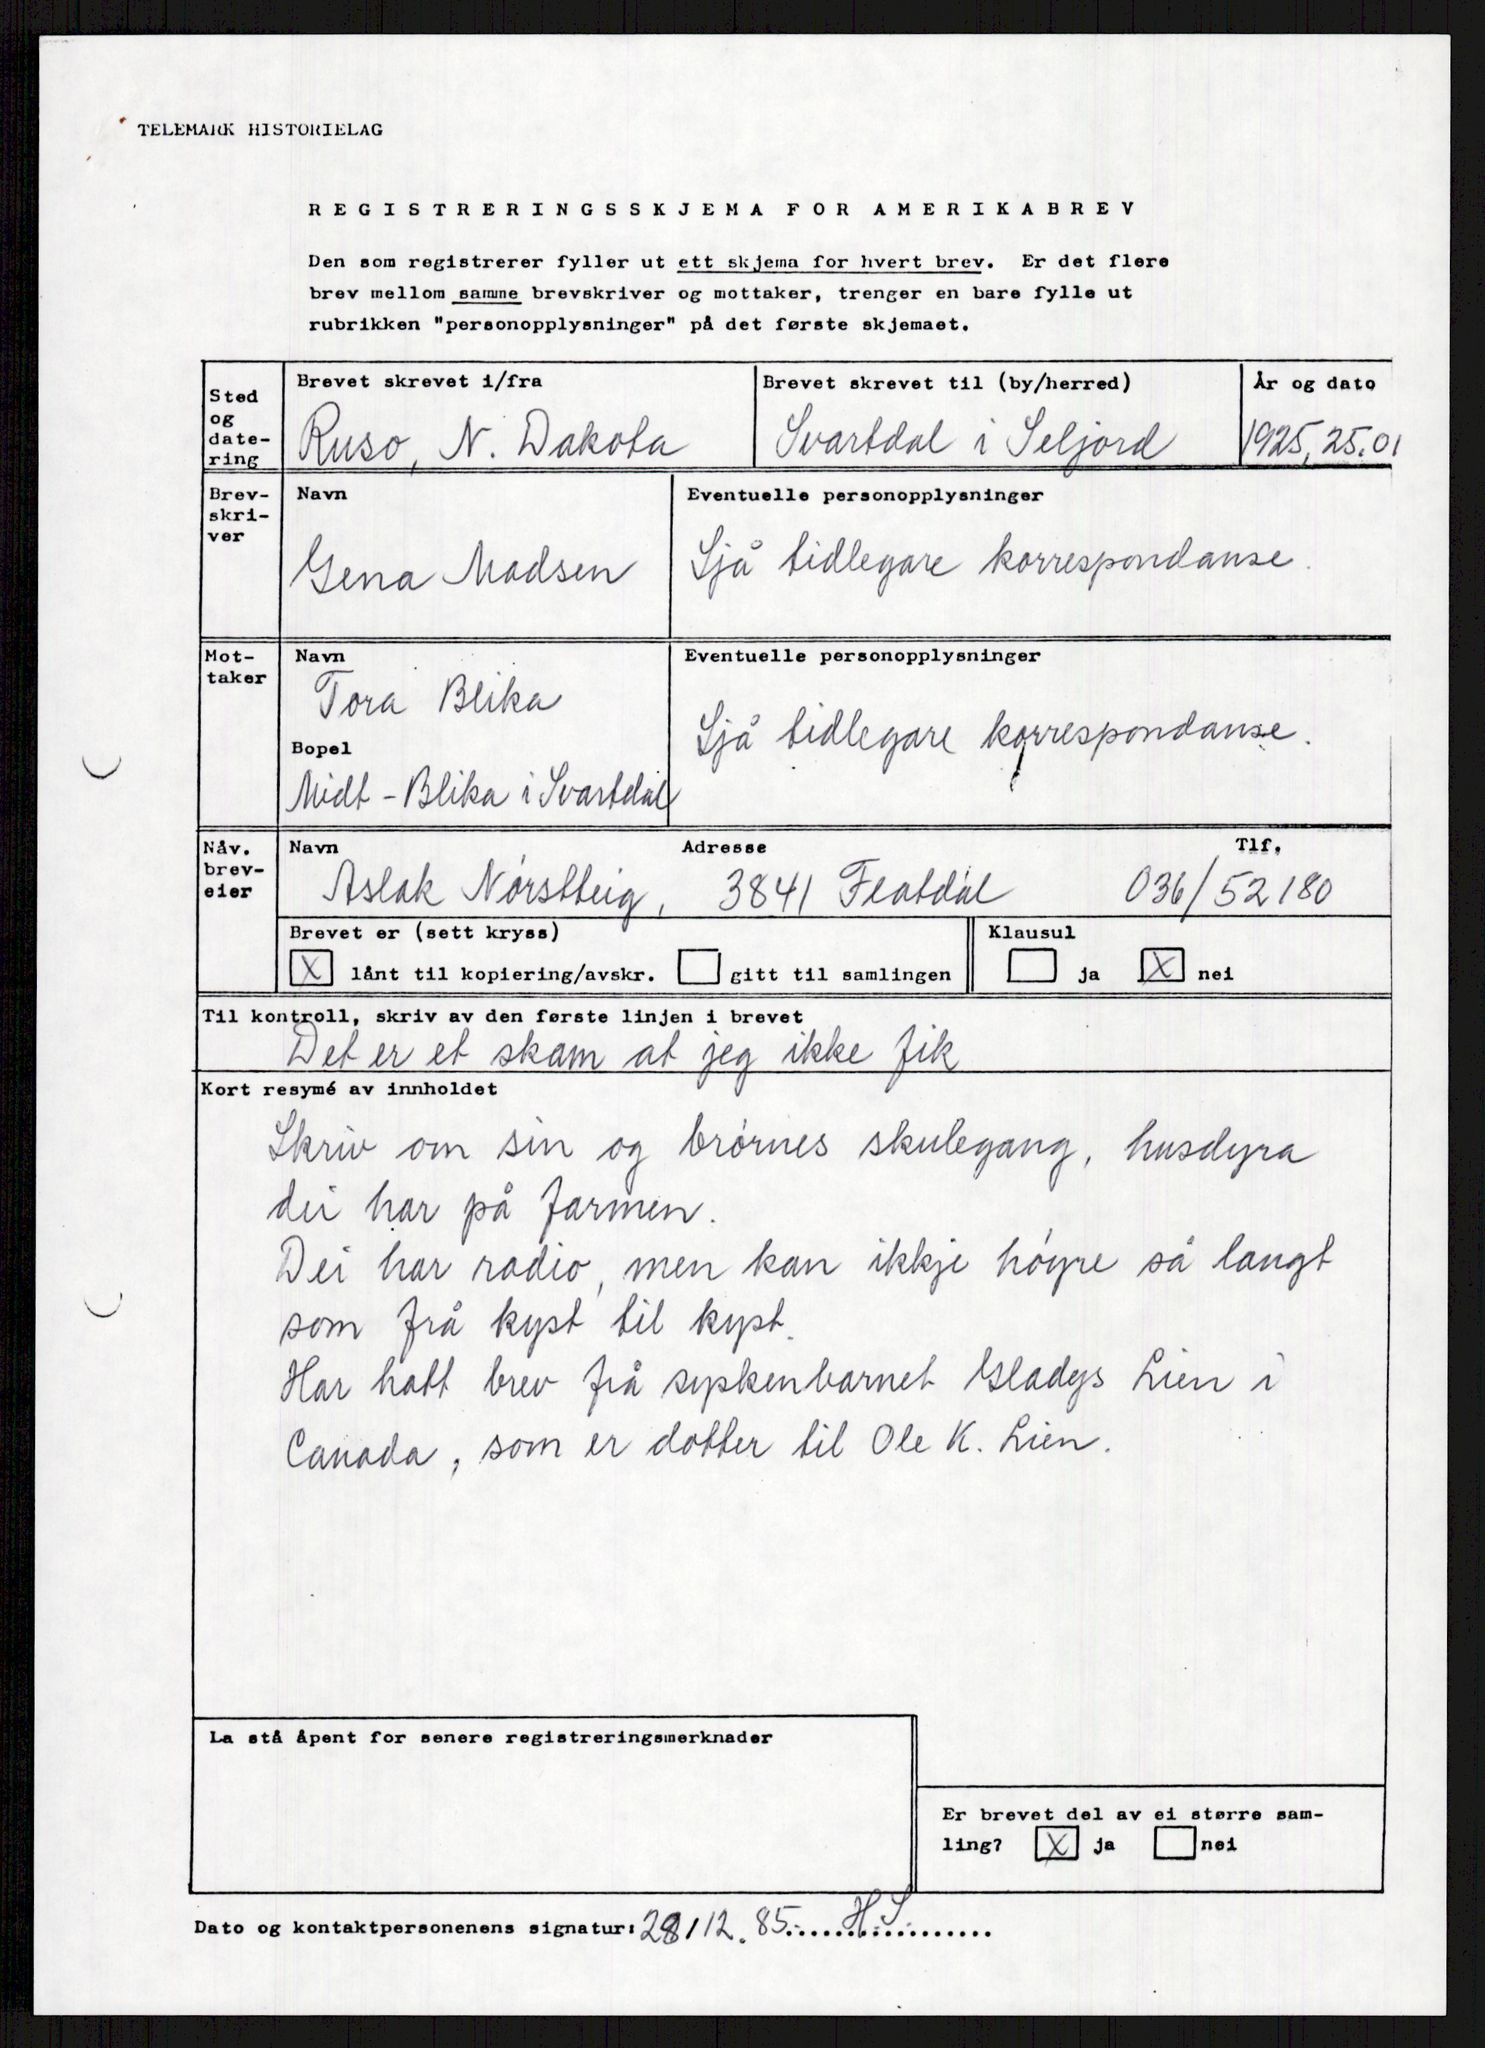 TELEMARK HISTORIELAG
REGISTRERINGSSKJEMA FOR AMERIKABREV
Den som registrerer fyller ut ett skjema for hvert brev. Er det flere
brev mellom samme brevskriver og mottaker, trenger en bare fylle ut
rubrikken "personopplysninger" på det første skjemaet.
Sted
og
date-
ring
Brevet skrevet i/fra
Ruso, N. Dakota
Brevet skrevet til (by/herred)
Svartdal i Seljord
År og dato
1925, 25.01
Brev-
skri-
ver
Navn
Gena Madsen
Eventuelle personopplysninger
Sjå tidlegare korrespondanse.
Mot-
taker
Navn
Tora Blika
Bopel
Midt-Blika i Svartdal
Eventuelle personopplysninger
Sjå tidlegare korrespondanse.
Nåv.
brev-
eier
Navn
Aslak Nørstteig,
Adresse
3841 Flatdal
Tlf.
036/52180
Brevet er (sett kryss)
X lånt til kopiering/avskr. gitt til samlingen
Klausul
ja X nei
Til kontroll, skriv av den første linjen i brevet
Det er et skam at jeg ikke fik
Kort resymé av innholdet
Skriv om sin og brørnes skulegang, husdyra
dei har på farmen.
Dei har radio, men kan ikkje høyre så langt
som frå kyst til kyst.
Har hatt brev frå syskenbarnet Gladys Lien i
Canada, som er dotter til Ole K. Lien.
La stå åpent for senere registreringsmerknader
Er brevet del av ei større sam-
ling? X ja nei
Dato og kontaktpersonenens signatur: 28/12.85 HS